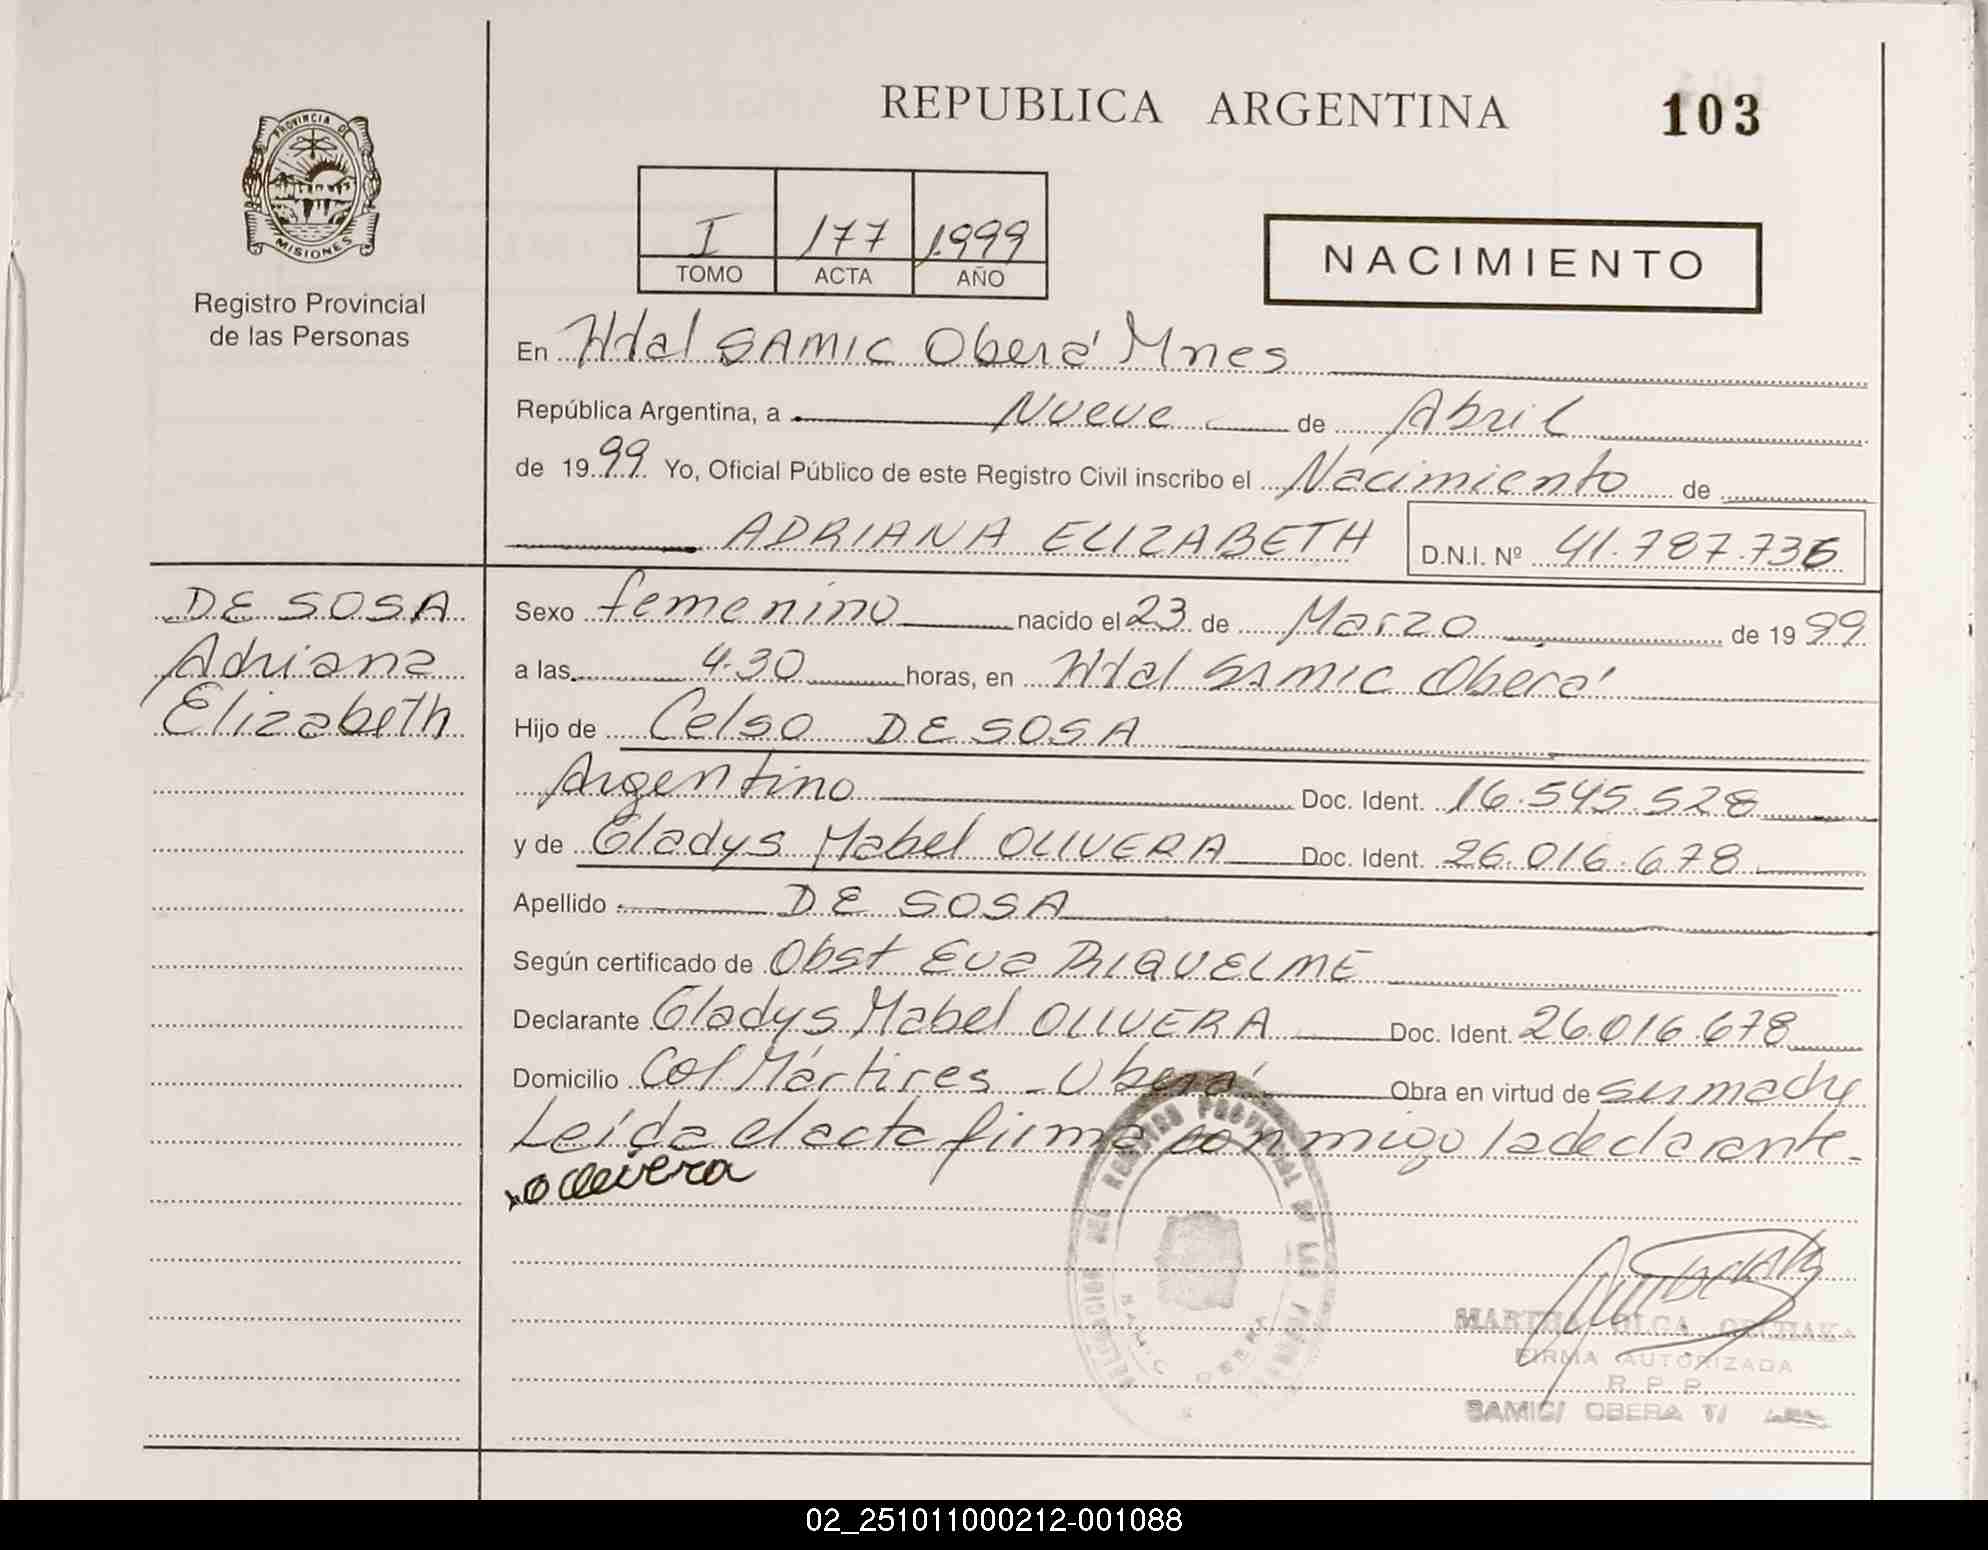 REPUBLICA ARGENTINA
103
PROVINCIA DE
MISIONES
Registro Provincial
de las Personas
I 177 1999
TOMO ACTA AÑO
NACIMIENTO
En Htal SAMIC Oberá Mnes
República Argentina, a Nueve de Abril
de 1999 Yo, Oficial Público de este Registro Civil inscribo el Nacimiento de
ADRIANA ELIZABETH D.N.I. Nº 41.787.736
DE SOSA
Adriana
Elizabeth
Sexo femenino nacido el 23 de Marzo de 1999
a las 4.30 horas, en Htal SAMIC Oberá
Hijo de Celso DE SOSA
Argentino Doc. Ident. 16.545.528
y de Gladys Mabel OLIVERA Doc. Ident. 26.016.678
Apellido DE SOSA
Según certificado de Obst Eva RIQUELME
Declarante Gladys Mabel OLIVERA Doc. Ident. 26.016.678
Domicilio Col Mártires - Oberá Obra en virtud de su madre
Leída el acta firma conmigo la declarante.
olivera
DELEGACION DEL REGISTRO PROVINCIAL DE LAS
MARTHA OLGA
FIRMA AUTORIZADA
R. P. P.
SAMIC/ OBERA T/
02_251011000212-001088